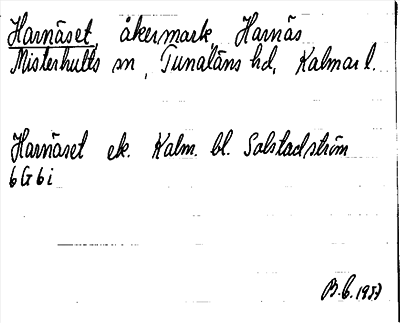 Harnäset, åkermark, Harnäs
Misterhults sn, Tunaläns hd, Kalmar l.
Harnäset ek. Kalm. bl. Solstadström
6G6i
B.G. 1957